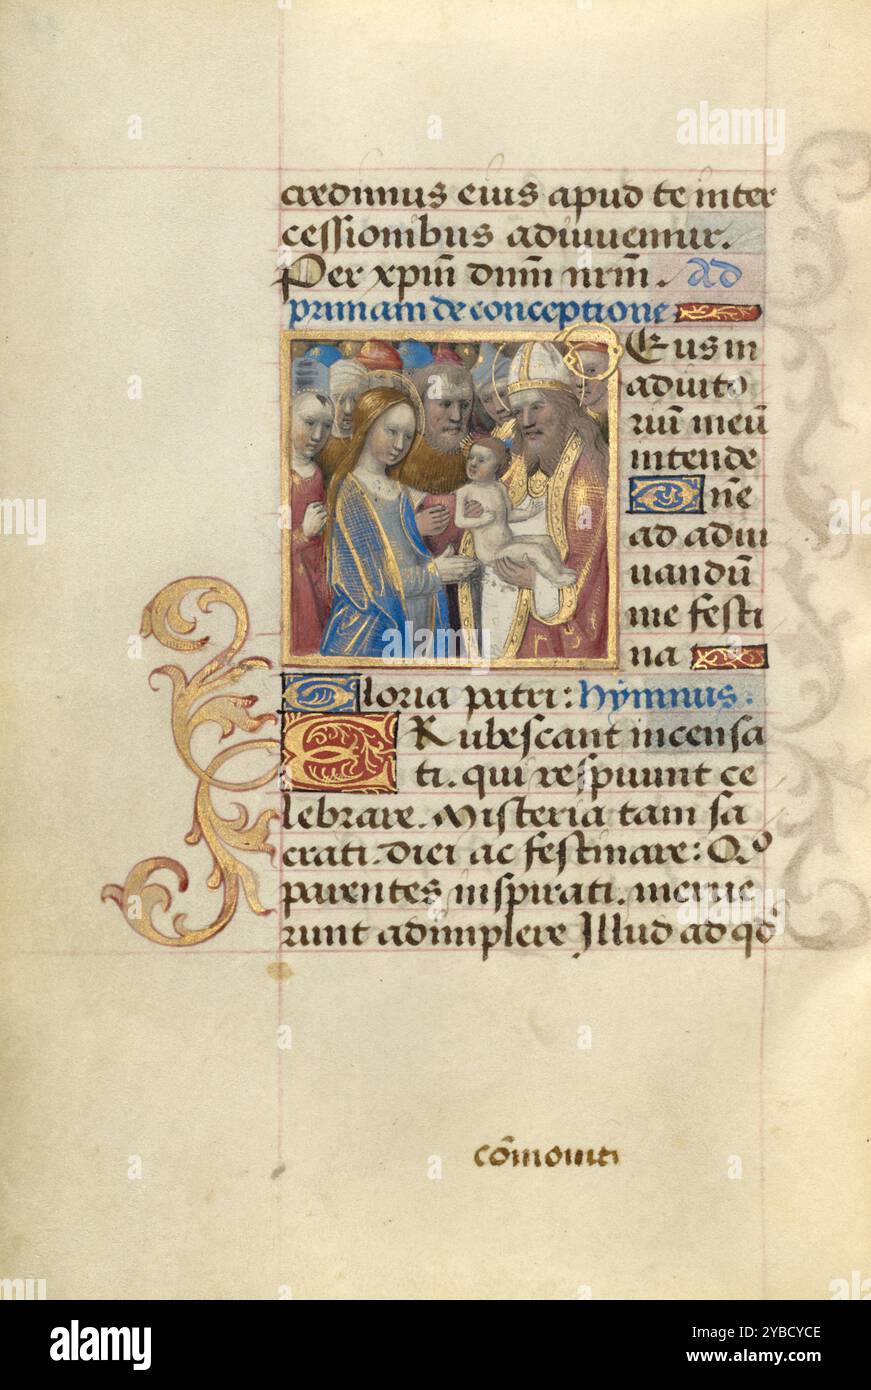 credimus eius apud te inter
cessionibus adiuuemur.
Per xp̄m dnm̄ nrm̄. Ad
primam de conceptione
Eus in
adiuto
riū meū
intende
Dn̄e
ad adiu
uandū
me festi
na
Gloria patri: hymnus.
ERubescant incensa
ti. qui respuunt ce
lebrare. Misteria tam sa
crati. diei ac festinare: Qo
parentes inspirati. merue
runt adimplere Illud ad qd
cōmoniti
alamy
Image ID: 2YBCYCE
www.alamy.com